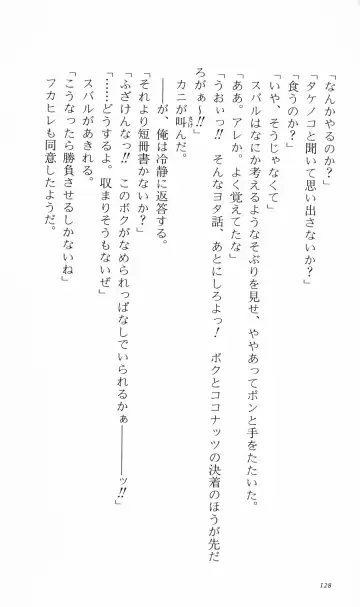 「なんかやるのか?」
「タケノコと聞いて思い出さないか?」
「食うのか?」
「いや、そうじゃなくて」
　スバルはなにか考えるようなそぶりを見せ、ややあってポンと手をたたいた。
「ああ。アレか。よく覚えてたな」
「うおぉっ!!　そんなヨタ話、あとにしろよっ!　ボクとココナッツの決着のほうが先だ
ろがぁ〜!!」
　カニが叫んだ。
　――が、俺は冷静に返答する。
「それより短冊書かないか?」
「ふざけんなっ!!　このボクがなめられっぱなしでいられるかぁ――――ッ!!」
「……どうするよ。収まりそうもないぜ」
　スバルがあきれる。
「こうなったら勝負させるしかないね」
　フカヒレも同意したようだ。
128